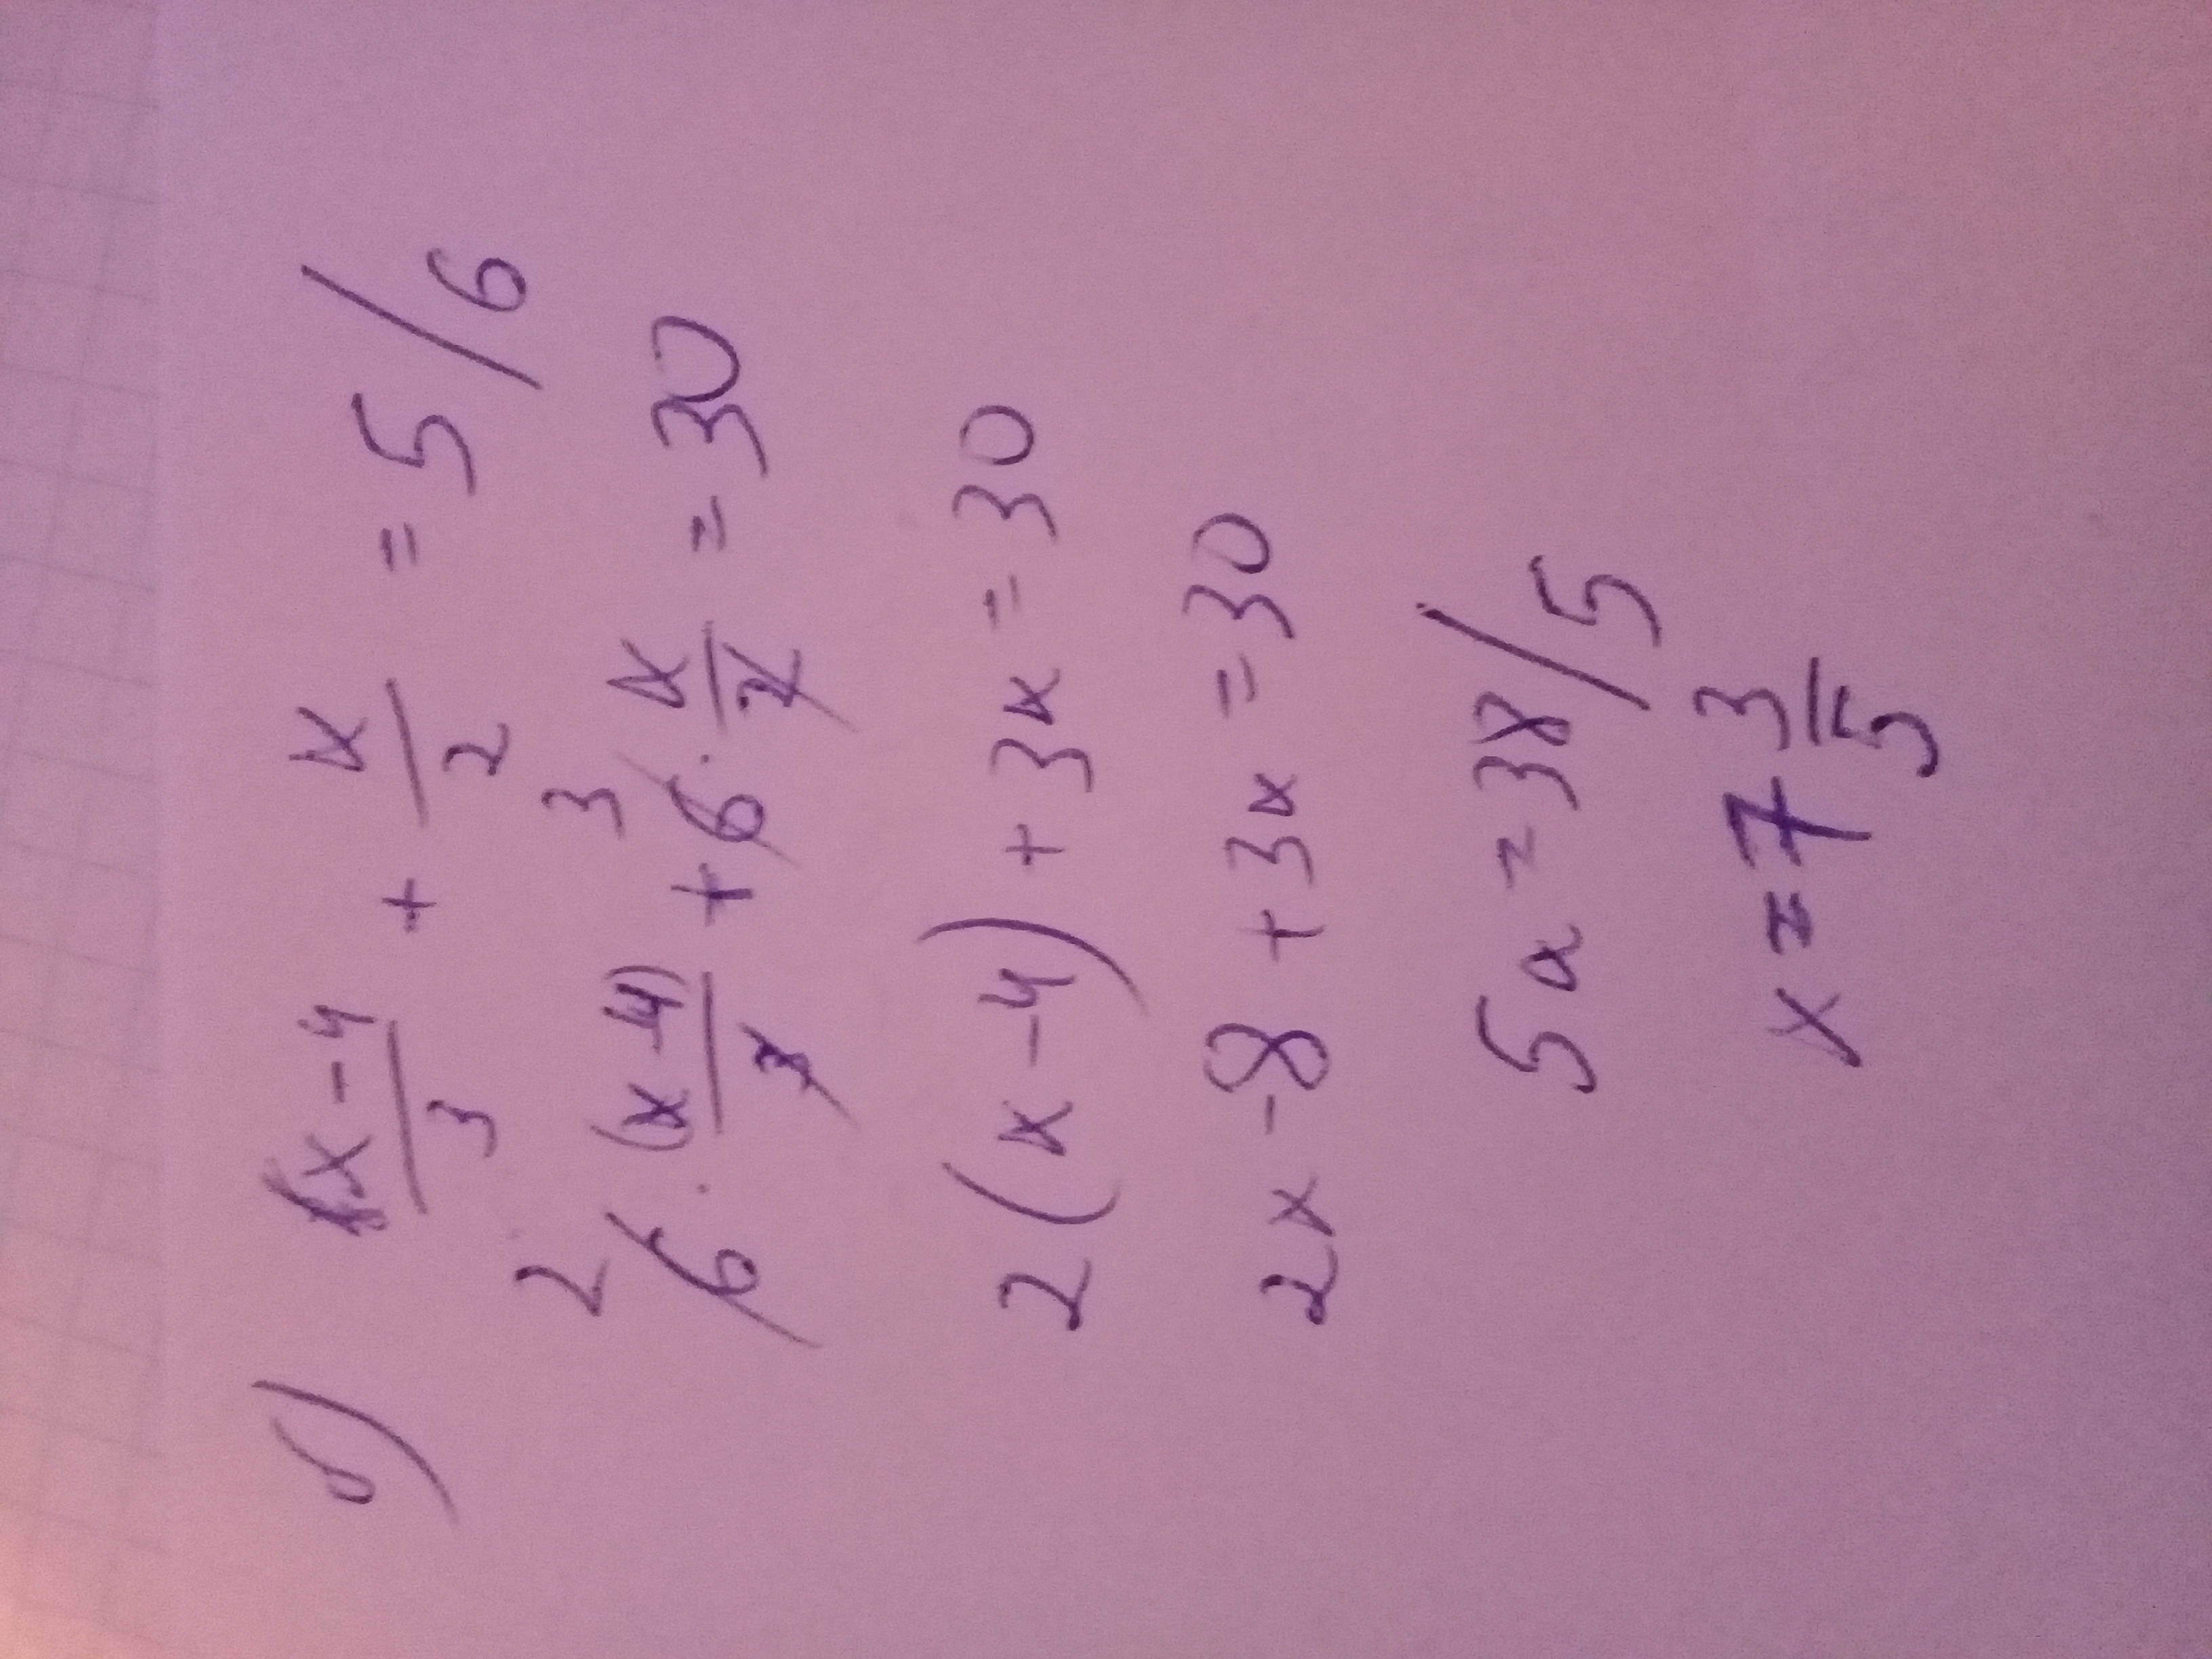 б) (x-4)/3 + x/2 = 5 /6
2 6·(x-4)/3 + 3 6·x/2 = 30
2(x-4) + 3x = 30
2x - 8 + 3x = 30
5x = 38 /5
x = 7 3/5